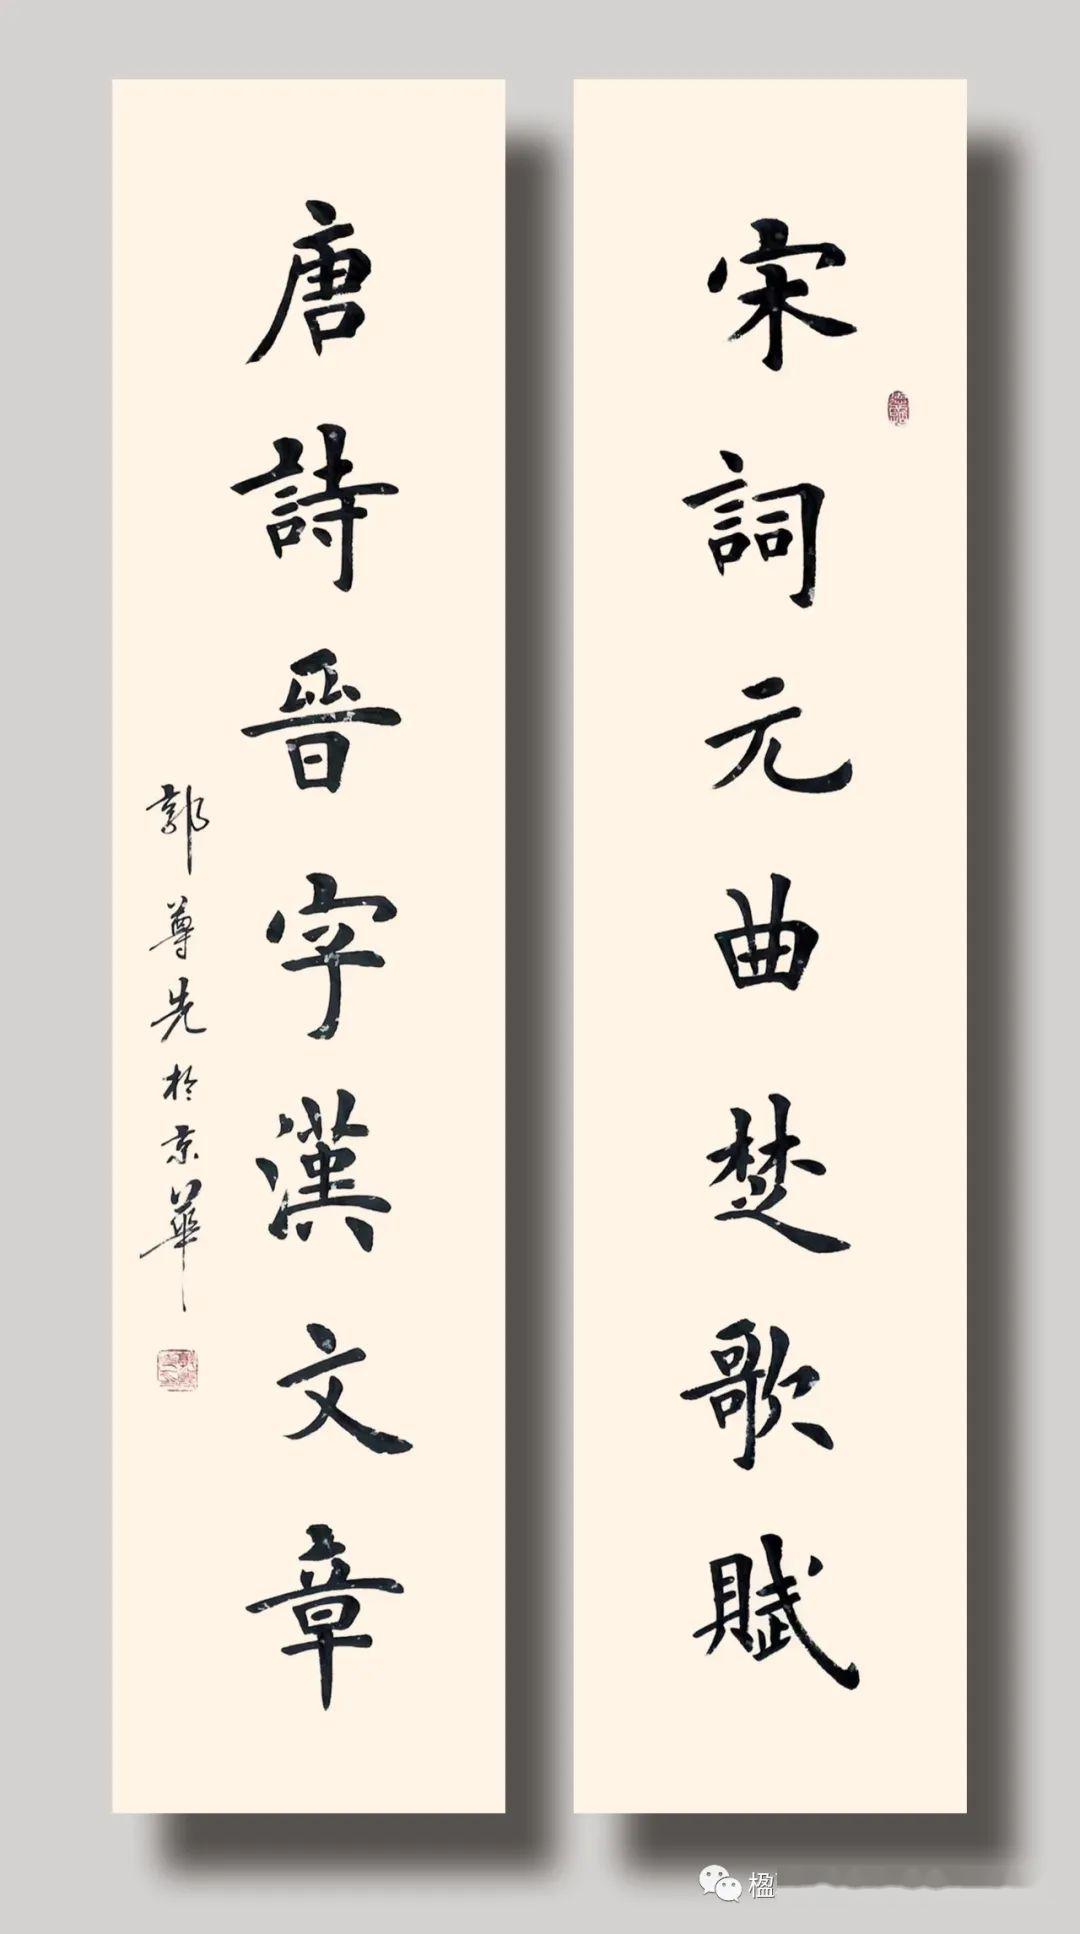 宋詞元曲楚歌賦
唐詩晉字漢文章
郭尊先於京華
楹